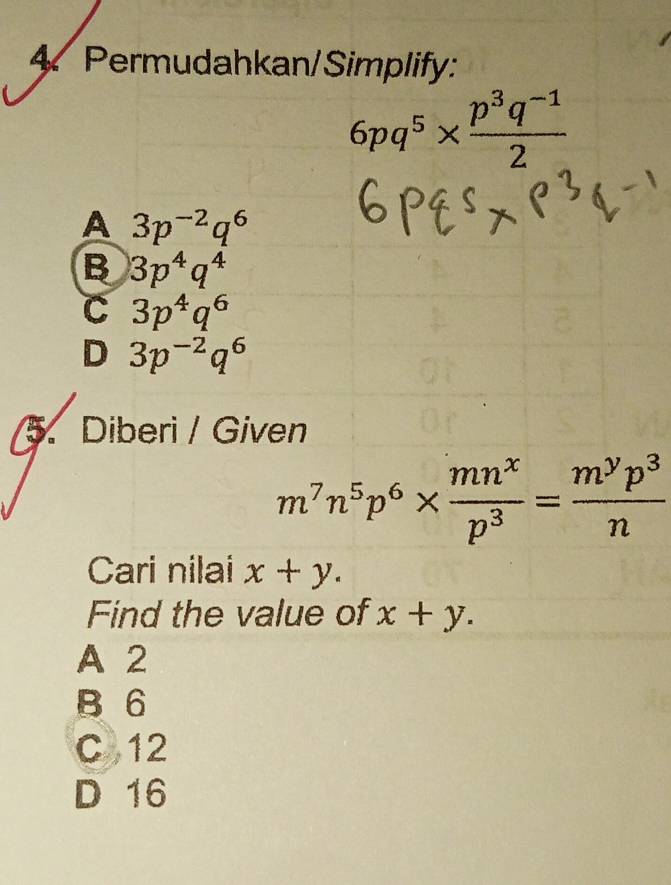 4. Permudahkan/Simplify:
6pq⁵ × p³q⁻¹/2
6pq⁵ × p³q⁻¹
A 3p⁻²q⁶
B 3p⁴q⁴
C 3p⁴q⁶
D 3p⁻²q⁶
5. Diberi / Given
m⁷n⁵p⁶ × mnˣ/p³ = mʸp³/n
Cari nilai x + y.
Find the value of x + y.
A 2
B 6
C 12
D 16